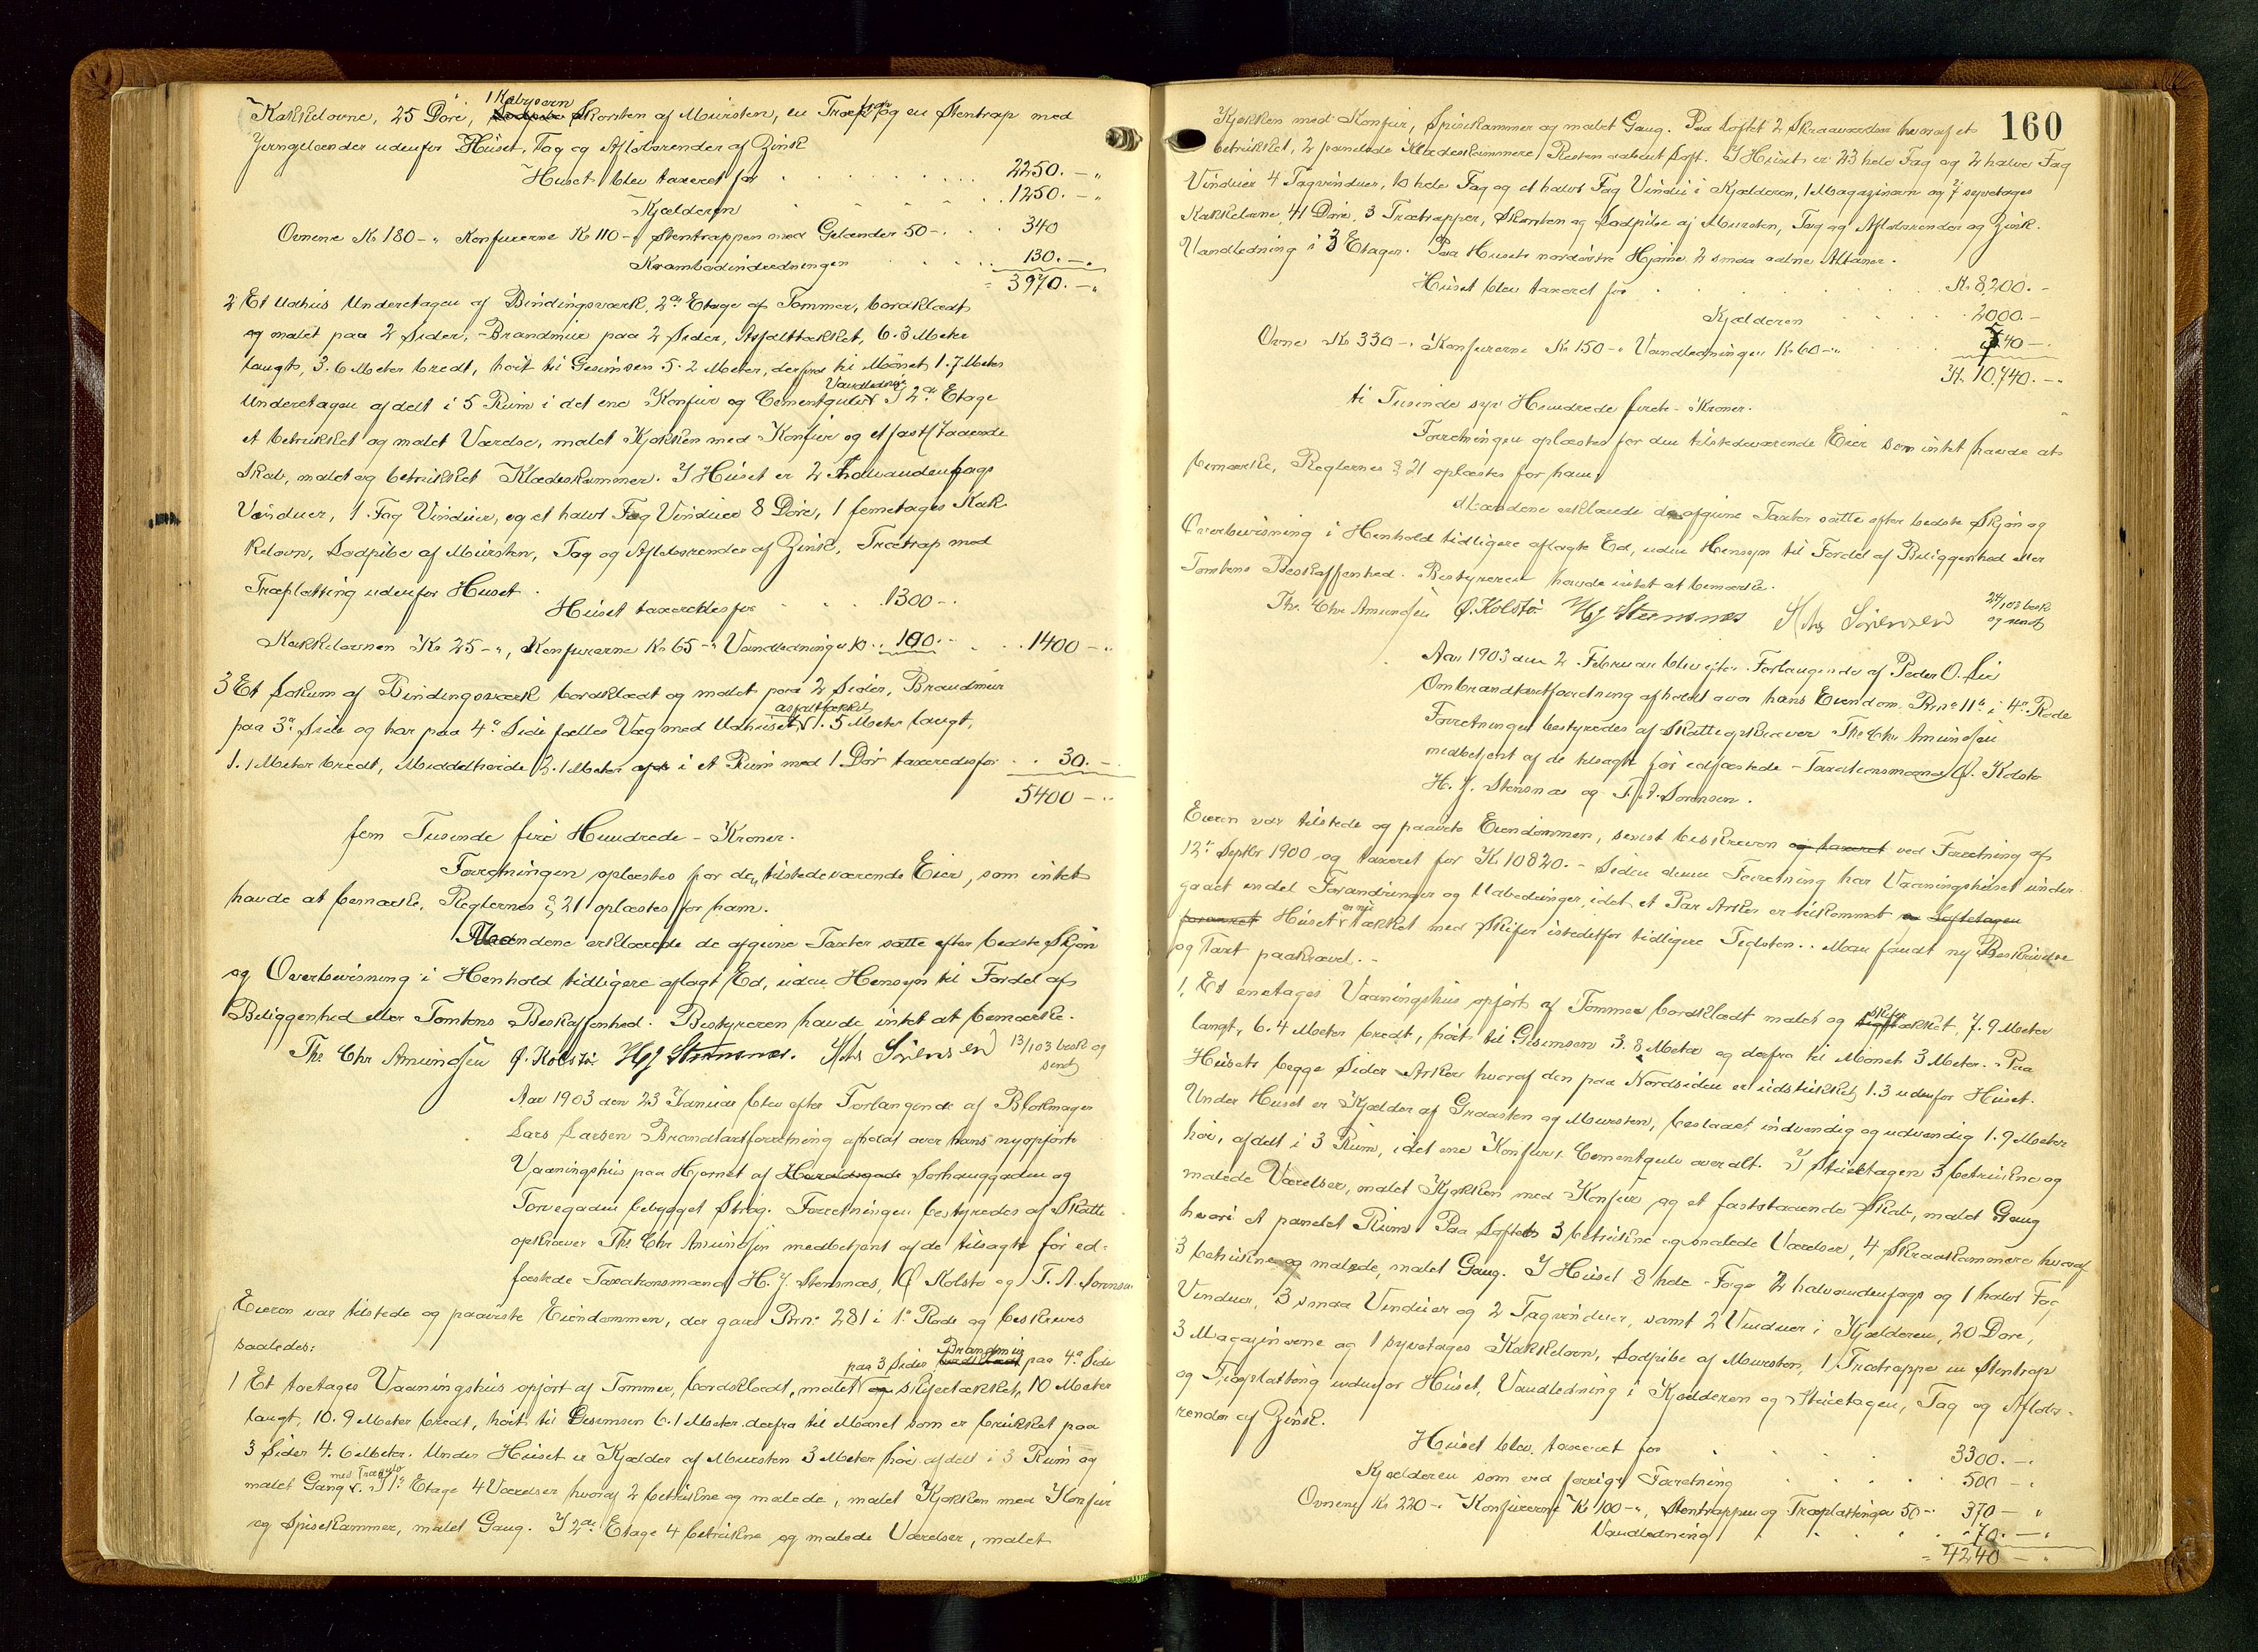 Kakkelovne, 25 Döre, 1 Kabysovn Skorsten af Mursten, en Trætrap og en Stentrap med
Jerngelænder udenfor Huset, Tag og Aflöbsrender af Zink
Huset blev taxeret for 2250.-"
Kjælderen 1250.-"
Ovnene Kr 180-" Komfurerne Kr 110-" Stentrappen med Gelænder 50-. 340
Krambodindredningen 130.-.
3970.-"
2 Et Udhus Underetagen af Bindingsværk, 2den Etage af Tömmer, bordklædt
og malet paa 2 Sider, Brandmur paa 2 Sider, Asfalttækket, 6.3 Meter
langt, 3.6 Meter bredt, höit til Gesimsen 5.2 Meter, derfra til Mönet 1.7 Meter
Underetagen afdelt i 5 Rum i det ene Komfur og Cementgulv Vandledning I 2den Etage
et betrukket og malet Værelse, malet Kjökken med Komfur og et faststaaende
Skab, malet og betrukket Klædeskammer. I Huset er 2 halvandenfags
Vinduer, 1 Fag Vinduer, og et halvt Fag Vinduer 8 Döre, 1 femetages Kak-
kelovn, Sodpibe af Mursten, Tag og Aflöbsrender af Zink, Trætrap med
Træplatting udenfor Huset.
Huset taxeredes for 1300-.
Kakkelovnen Kr 25-", Komfurerne Kr 65-" Vandledningen 10.. 100.- 1400-"
3 Et Lokum af Bindingsværk bordklædt og malet paa 2 Sider, Brandmur
paa 3die Side og har paa 4de Side fælles Væg med Udhuset, asfalttækket 1.5 Meter langt,
1.1 Meter bredt, Middelhöide 2.1 Meter i et Rum med 1 Dör taxeredes for 30.-
5400-"
fem Tusinde fire Hundrede - Kroner.
Forretningen oplæstes for den tilstedeværende Eier, som intet
havde at bemærke. Reglernes § 21 oplæstes for ham.
Mændene erklærede de afgivne Taxter satte efter bedste Skjön
og Overbevisning i Henhold tidligere aflagt Ed, uden Hensyn til Fordel af
Beliggenhed eller Tomtens Beskaffenhed. Bestyreren havde intet at bemærke.
Ths Chr Amundsen Ø. Kolstö HJ Stensnes. Sörensen 13/1 03 besk og
sendt
Aar 1903 den 23 Januar blev efter Forlangende af Blokmager
Lars Larsen Brandtaxtforretning afholdt over hans nyopförte
Vaaningshus paa Hjörnet af Haraldsgade Sörhauggaden og
Torvegaden bebygget Strög. Forretningen bestyredes af Skatte
opkræver Ths Chr Amundsen medbetjent af de tilsagte för ed-
fæstede Taxationsmænd H. J. Stensnæs, Ø Kolstö og T. A. Sörensen
Eieren var tilstede og paaviste Eiendommen, der gaves Brno 281 i 1ste Rode og beskrives
saaledes:
1 Et toetages Vaaningshus opfört af Tömmer, bordklædt, malet paa 3 Sider Brandmur paa 4de Side og skifertækket, 10 Meter
langt, 10.9 Meter bredt, höit til Gesimsen 6.1 Meter derfra til Mönet som er brukket paa
3 Sider 4.6 Meter. Under Huset er Kjælder af Mursten 3 Meter höi afdelt i 3 Rum og
malet Gang. I 1ste Etage 4 Værelser hvoraf 2 betrukne og malede, malet Kjökken med Komfur
og Spisekammer, malet Gang. I 2den Etage 4 betrukne og malede Værelser, malet
160
Kjökken med Komfur, Spisekammer og malet Gang. Paa Loftet 2 Skraaværelser hvoraf et
betrukket, 2 panelede Klædeskammere Resten aabent Loft. I Huset er 23 hele Fag og 2 halve Fag
Vinduer 4 Tagvinduer, 10 hele Fag og et halvt Fag Vindu i Kjælderen, 1 Magazinovn og 7 syvetages
Kakkelovne 41 Döre, 3 Trætrapper, Skorsten og Sodpibe af Mursten, Tag og Aflöbsrender og Zink.
Vandledning i 3 Etager. Paa Husets nordöstre Hjörne 2 smaa aabne Altaner.
Huset blev taxeret for Kr. 8200.-
Kjælderen 2000.-
Ovne Kr 330-. Komfurerne Kr 150-" Vandledningen Kr 60-" 540-.
Kr. 10,740.-"
ti Tusinde syv Hundrede firti - Kroner.
Forretningen oplæstes for den tilstedeværende Eier som intet havde at
bemærke, Reglernes § 21 oplæstes for ham.
Mændene erklærede de afgivne Taxter satte efter bedste Skjön og
Overbevisning i Henhold tidligere aflagte Ed, uden Hensyn til Fordel af Beliggenhed eller
Tomtens Beskaffenhed. Bestyreren havde intet at bemærke.
Ths. Chr Amundsen Ø. Kolstö HJ Stensnæs Sörensen 24/1 03 besk
og sendt
Aar 1903 den 2 Februar blev efter Forlangende af Peder O. Lie
Ombrandtaxtforretning afholdt over hans Eiendom Brno 11a i 4de Rode
Forretningen bestyredes af Skatteopkræver Ths Chr Amundsen
medbetjent af de tilsagte för edfæstede Taxationsmænd Ø. Kolstö
H. J. Stensnæs og T. A. Sörensen.
Eieren var tilstede og paaviste Eiendommen, senest beskreven og taxeret ved Forretning af
12te Septbr 1900 og taxeret for Kr. 10820.- Siden denne Forretning har Vaaningshuset under-
gaaet endel Forandringer og Udbedringer, idet et Par Arker er tilkommet og Loftetagen
forøvrigt Huset er nu tækket med Skifer istedetfor tidligere Teglsten.. Man fandt ny Beskrivelse
og Taxt paakrævet.-
1, Et enetages Vaaningshus opfört af Tömmer bordklædt malet og skifertækket, 7.9 Meter
langt, 6.4 Meter bredt, höit til Gesimsen 3.8 Meter og derfra til Mönet 3 Meter. Paa
Husets begge Sider Arker hvoraf den paa Nordsiden er udstukket 1.3 udenfor Huset.
Under Huset er Kjælder af Graasten og Mursten, beslaaet indvendig og udvendig 1.9 Meter
höi, afdelt i 3 Rum, i det ene Komfur, Cementgulv overalt. I Stuetagen 3 betrukne og
malede Værelser, malet Kjökken med Komfur og et faststaaende Skab, malet Gang
hvori et panelet Rum. Paa Loftet 3 betrukne og malede Værelser, 4 Skraakammere hvoraf
3 betrukne og malede, malet Gang. I Huset 8 hele Fags 2 halvandenfags og 1 halvt Fag
Vinduer, 3 smaa Vinduer og 2 Tagvinduer, samt 2 Vinduer i Kjælderen, 20 Döre,
3 Magazinovne og 1 syvetages Kakkelovn, Sodpibe af Mursten, 1 Trætrappe en Stentrap
og Træplatting udenfor Huset, Vandledning i Kjælderen og Stuetagen, Tag og Aflöbs-
render af Zink.
Huset blev taxeret for 3300.-.
Kjælderen som ved forrige Forretning 500-.
Ovnene Kr 220-. Komfurerne Kr 100-", Stentrappen og Træplattingen 50-. 370-"
Vandledning 70.-.
4240-.